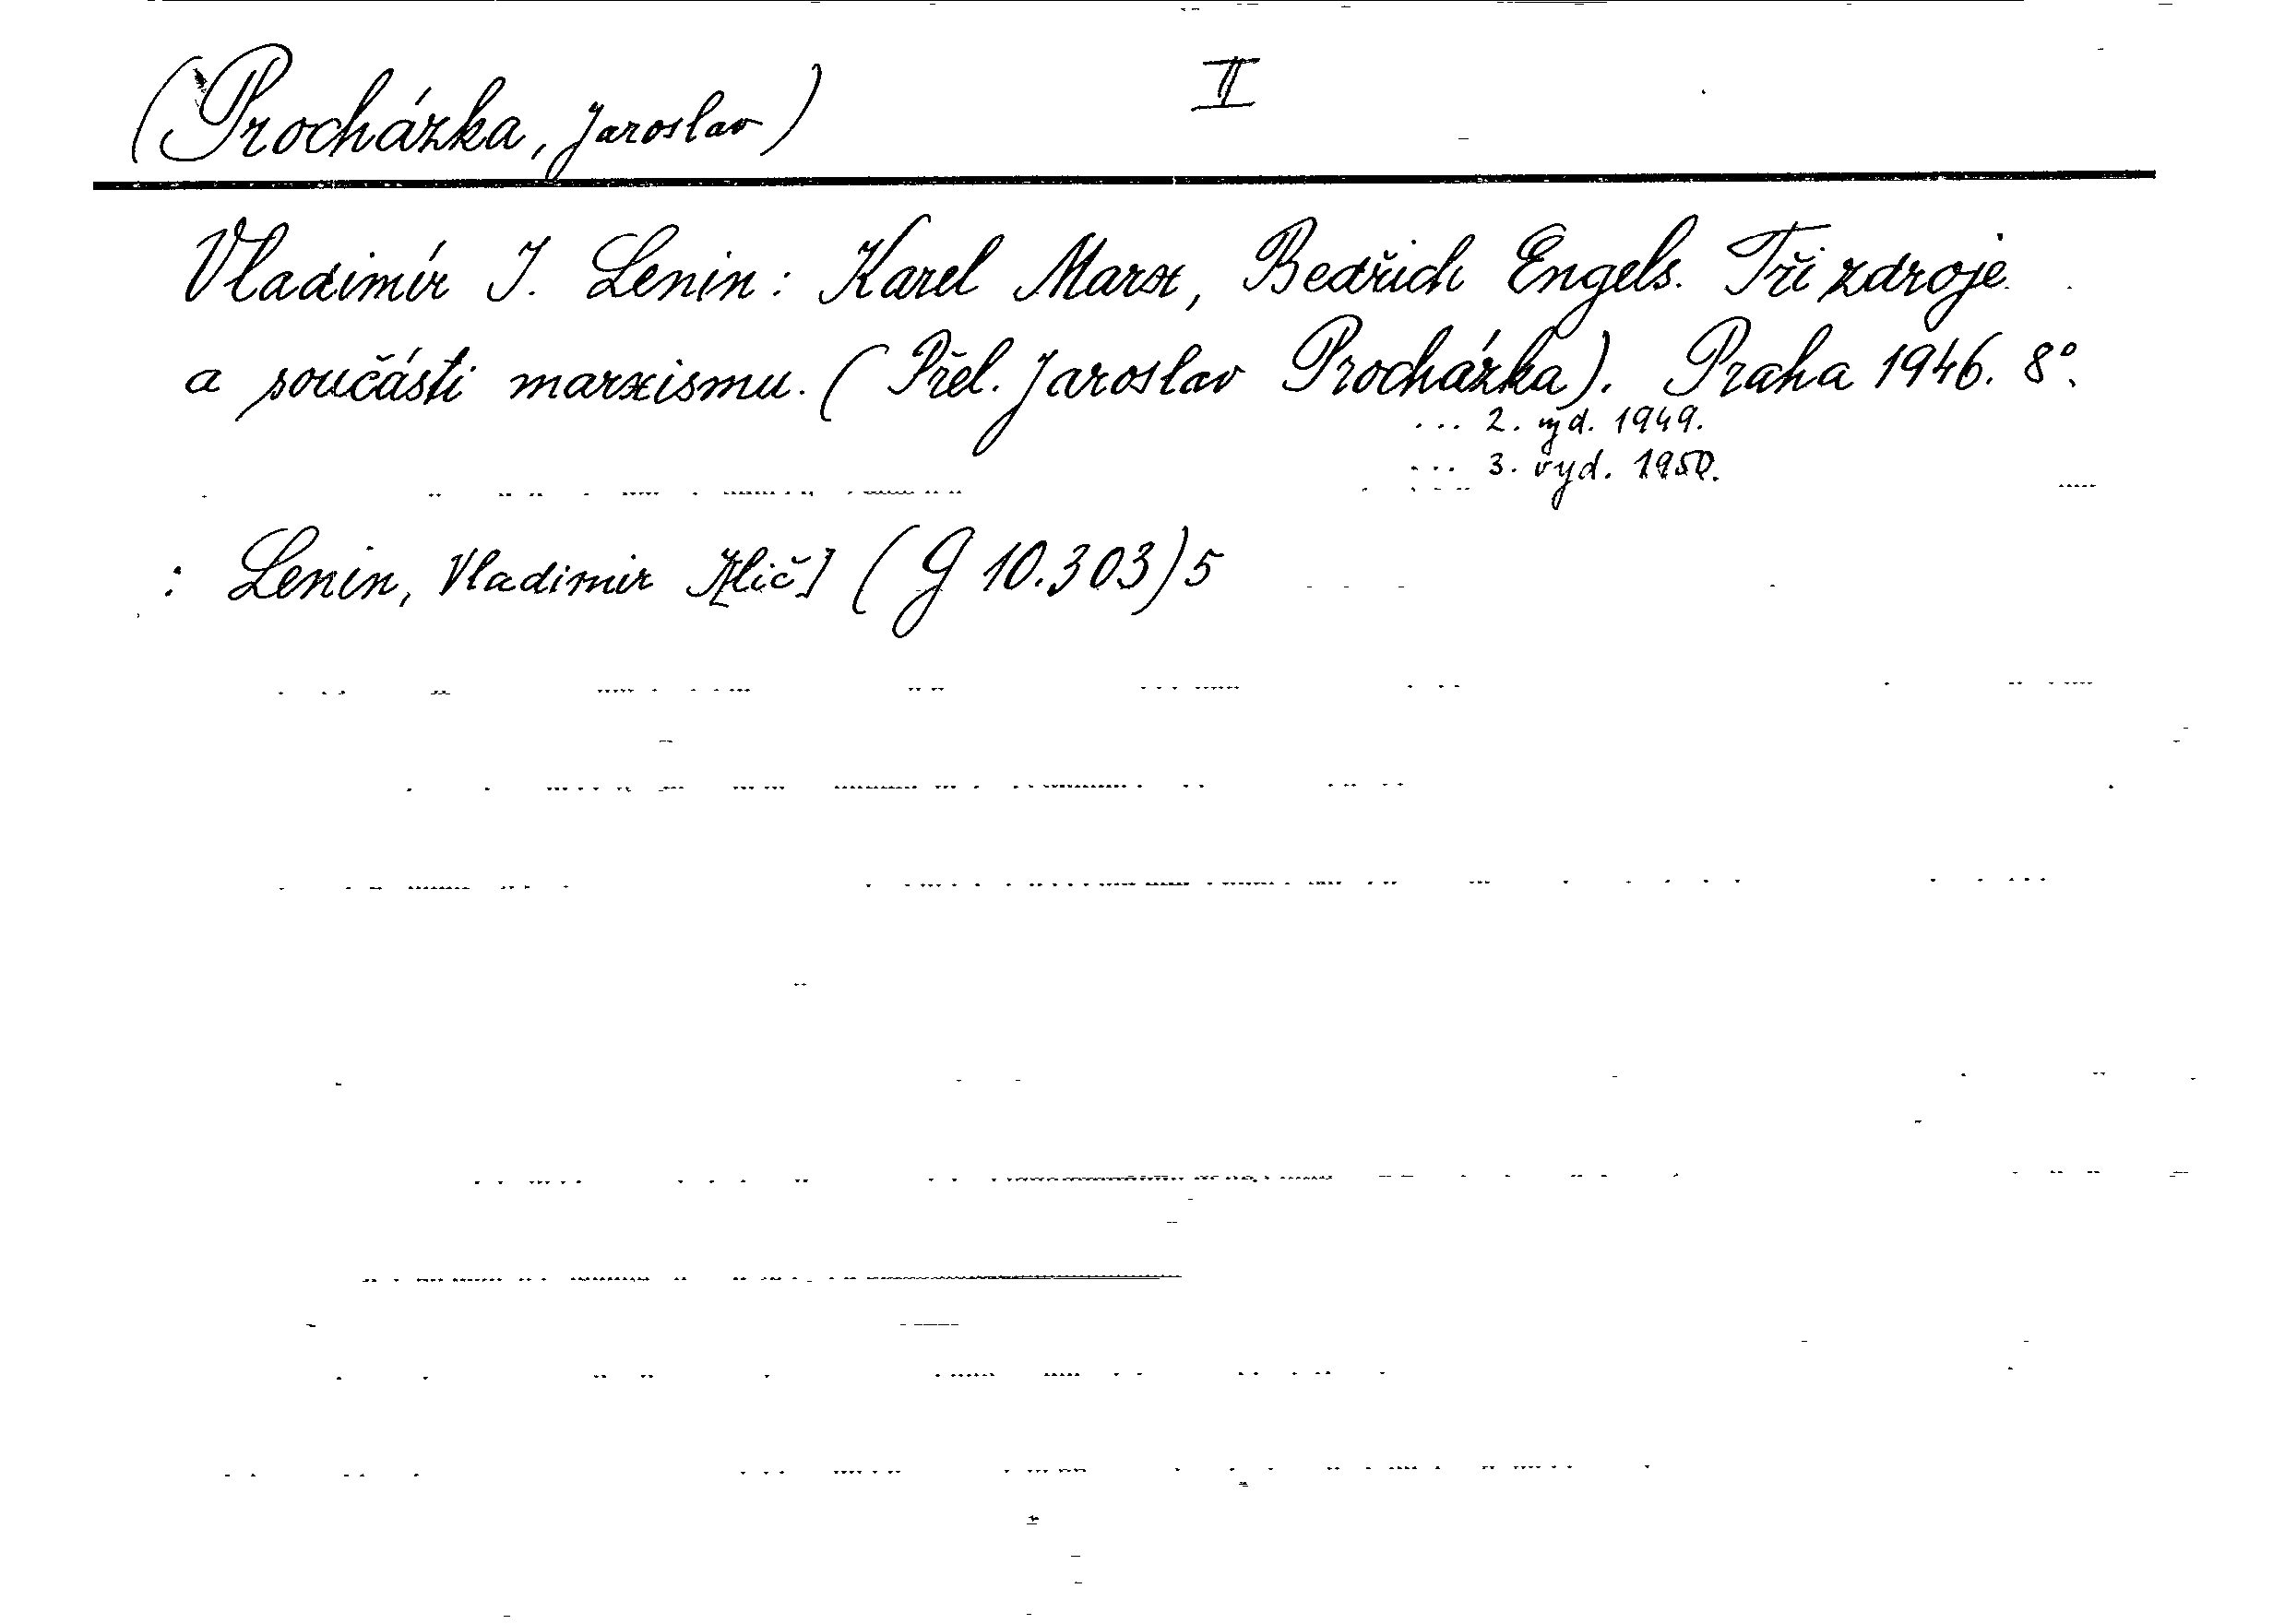 (Procházka, Jaroslav) II
Vladimír I. Lenin: Karel Marx, Bedřich Engels. Tři zdroje
a součásti marxismu. (Přel. Jaroslav Procházka). Praha 1946. 8°.
... 2. vyd. 1949.
... 3. vyd. 1950.
: Lenin, Vladimir I[lič] (G 10.303)5